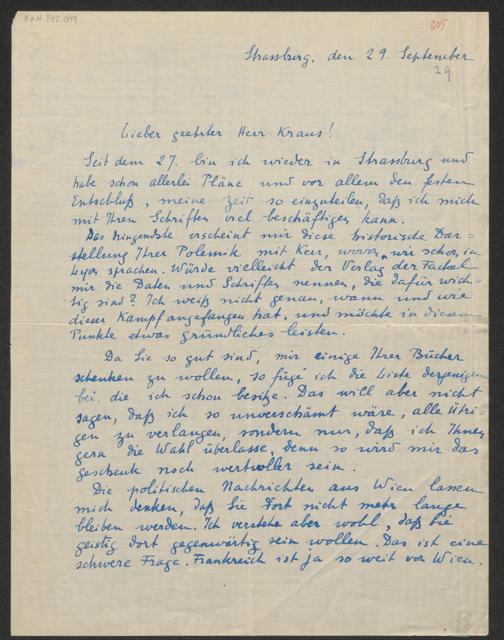 H.I.N. 242.044
305
Strassburg, den 29. September
29
Lieber geehrter Herr Kraus!
Seit dem 27. bin ich wieder in Strassburg und
habe schon allerlei Pläne und vor allem den festen
Entschluß, meine Zeit so einzuteilen, daß ich mich
mit Ihren Schriften viel beschäftigen kann.
Das dringendste erscheint mir diese historische Dar=
stellung Ihrer Polemik mit Kerr, wovon wir schon in
sprachen. Würde vielleicht der Verlag der Fackel
mir die Daten und Schriften nennen, die dafür wich=
tig sind? Ich weiß nicht genau, wann und wie
dieser Kampf angefangen hat, und möchte in diesem
Punkte etwas gründliches leisten.
Da Sie so gut sind, mir einige Ihrer Bücher
schenken zu wollen, so füge ich die Liste derjenigen
bei, die ich schon besitze. Das will aber nicht
sagen, daß ich so unverschämt wäre, alle übri=
gen zu verlangen, sondern nur, daß ich Ihnen
gern die Wahl überlasse, denn so wird mir das
Geschenk noch wertvoller sein.
Die politischen Nachrichten aus Wien lassen
mich denken, daß Sie dort nicht mehr lange
bleiben werden. Ich verstehe aber wohl, daß Sie
geistig dort gegenwärtig sein wollen. Das ist eine
schwere Frage. Frankreich ist ja so weit von Wien.